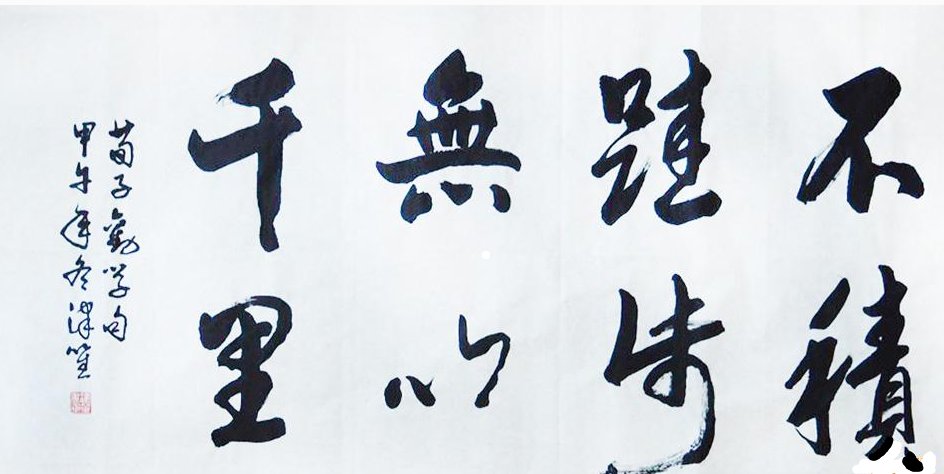 不積
跬步
無以
千里
荀子勸学句
甲午年冬津笙